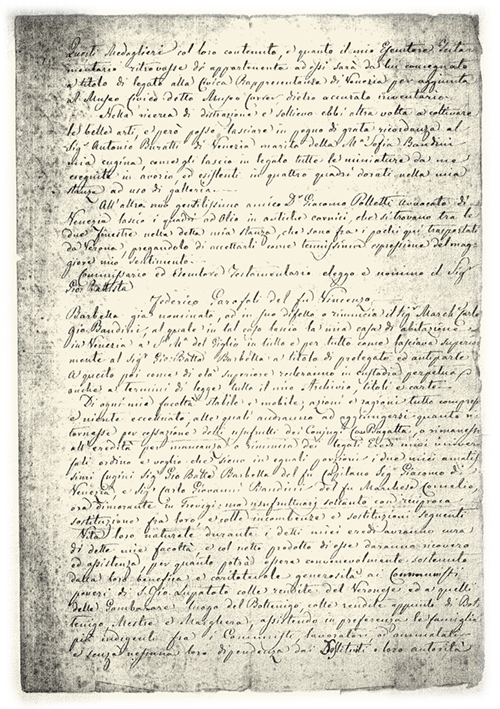 Questi Medaglieri col loro contenuto, e quanto il mio Esecutore Testa-
mentario ritrovasse di appartenente ad essi sarà da lui consegnato
a titolo di legato alla Civica Rappresentanza di Venezia per aggiunta
al Museo Civico detto Museo Correr dietro accurato inventario.
Nella ricerca di distrazione e sollievo ebbi altra volta a coltivare
le belle arti, e però posso lasciare in pegno di grata ricordanza al
Sig. Antonio Baratti di Venezia marito della Mª Sofia Bandini
mia cugina, come gli lascio in legato tutte le miniature da me
eseguite in avorio ed esistenti in quattro quadri dorati nella mia
stanza ad uso di galleria.
All'altro mio gentilissimo amico Dr. Giacomo Pollotti Avvocato di
Venezia lascio i quadri ad Olio in antiche cornici, che si trovano tra le
due finestre nella detta mia stanza, che sono fra i pochi qui trasportati
da Verona, pregandolo di accettarli come tenuissima espressione del mag-
giore mio sentimento.
Commissario ed Esecutore Testamentario eleggo e nomino il Sig.
Gio. Battista
Federico Garofali del fu Vincenzo
Barbella già nominato, ed in suo difetto o rinuncia il Sig. March. Carlo
Gio. Bandini, al quale in tal caso lascio la mia casa di abitazione
in Venezia a S. M. del Giglio in tutto e per tutto come lasciava superior-
mente al Sig. Gio. Batta Barbella a titolo di prelegato ed antiparte
A questo poi come di età superiore resteranno in custodia perpetua
anche a termini di legge tutto il mio Archivio, titoli e carte.
Di ogni mia facoltà stabile e mobile, azioni e ragioni tutto compreso
e niente eccettuato, alle quali andranno ad aggiungersi quanto ri-
tornasse per cessazione dell' usufrutto dei Conjugi e rimanesse
all'eredità per mancanza o rinuncia dei legati Eredi miei univer-
sali ordino e voglio che sieno in eguali porzioni i due miei amatis-
simi Cugini Sig. Gio. Batta Barbella del fu Capitano Sig. Giacomo di
Venezia e Sig. Carlo Giovanni Bandini del fu Marchese Cornelio,
ora dimorante in Trevigi: ma usufruttuarj soltanto con reciproca
sostituzione fra loro, e colle incombenze e sostituzioni seguenti
Vita loro naturale durante i detti miei eredi avranno cura
di dette mie facoltà, e col netto prodotto di esse daranno ricovero
ed assistenza per quanto potrà essere convenevolmente sostenuto
dalla loro benefica e caritatevole generosità ai Communisti
poveri di S. Gio. Lupatoto colle rendite del Veronese ed a quelli
delle Gambarare luogo del Bottenigo, colle rendite appunto di Bot-
tenigo, Mestre e Marghera, assistendo in preferenza le famiglie
più indigenti fra i Communisti, lavoratori ed ammalati
e senza nessuna loro dipendenza da Istituti e loro autorità